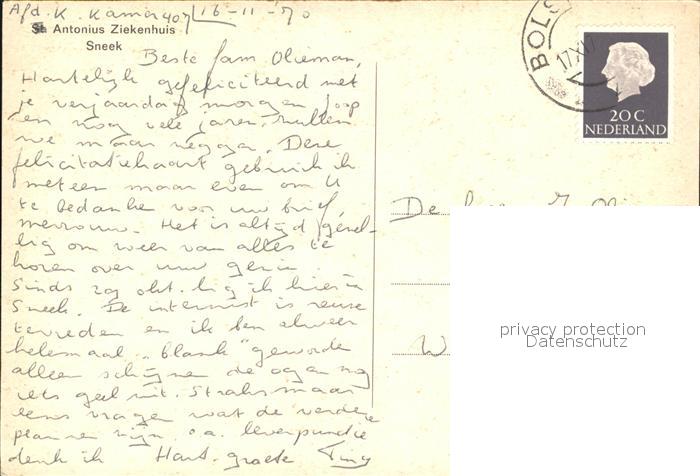 Afd. K. Kamer 407 16-11-'70
St. Antonius Ziekenhuis
Sneek
Beste fam Olieman,
Hartelijk gefeliciteerd met
je verjaardag morgen Joop
en nog vele jaren, zullen
we maar zeggen. Deze
felicitatiekaart gebruik ik
meteen maar even om U
te bedanke voor uw brief,
mevrouw. Het is altijd gezel-
lig om weer van alles te
horen over uw gezin.
Sinds 29 okt. lig ik hier in
Sneek. De internist is reuze
tevreden en ik ben alweer
helemaal "blank" geworden
alleen schijnen de ogen nog
iets geel uit. Straks maar
eens vragen wat de verdere
plannen zijn o.a. leverpunctie
denk ik Hart. groete Tiny
BOLS
17 XI
20 C
NEDERLAND
De
W
privacy protection
Datenschutz